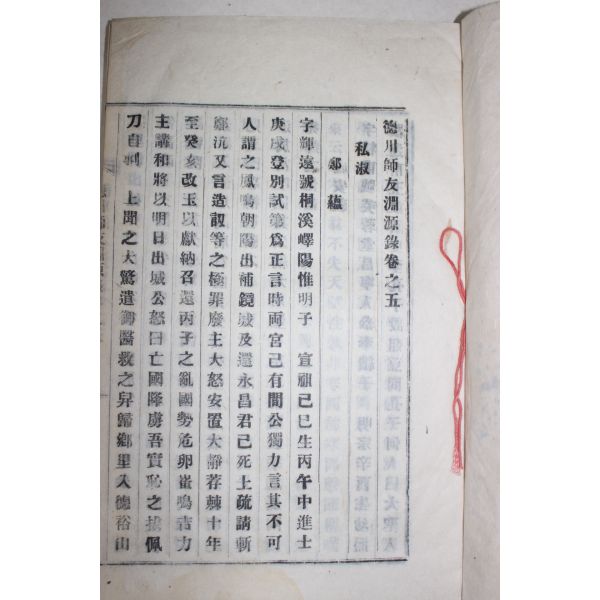 德川師友淵源錄卷之五
私淑
鄭蘊
字輝遠號桐溪嶧陽惟明子 宣祖己巳生丙午中進士
庚戌登別試第爲正言時兩宮已有間公獨力言其不可
人謂之鳳鳴朝陽出補鏡城及還永昌君已死上疏請斬
鄭沆又言造叡等之極罪廢主大怒安置大靜荐棘十年
至癸亥改玉以獻納召還丙子之亂國勢危卵崔鳴吉力
主講和將以明日出城公怒曰亡國降虜吾實恥之拔佩
刀自刺 上聞之大驚遣御醫救之舁歸鄉里入德裕山